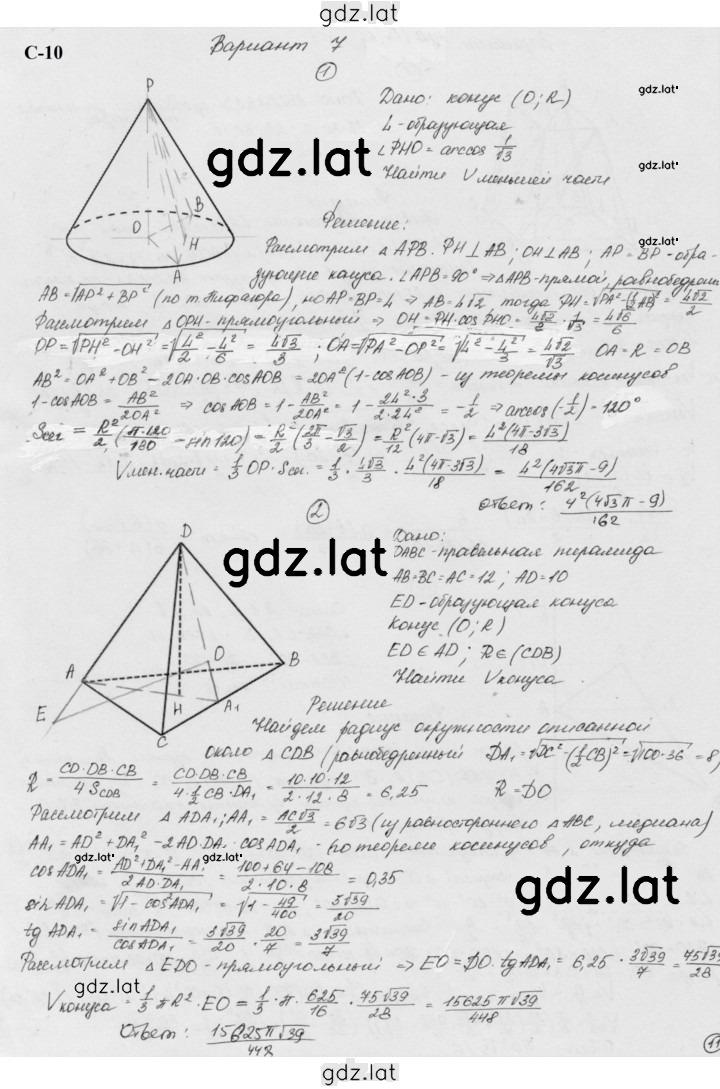 gdz.lat
С-10
Вариант 7
1
Дано: конус (O; R)
L - образующая
∠PHO = arccos 1/√3
Найти V меньшей части
gdz.lat
P
O
B
H
A
Решение:
Рассмотрим △ APB. PH ⊥ AB; OH ⊥ AB; AP = BP - обра-
зующие конуса. ∠APB = 90° ⇒ △APB - прямой, равнобедрен
AB = √AP² + BP² (по т. Пифагора), но AP = BP = L ⇒ AB = L√2 тогда PH = √PA² - (1/2 AB)² = L√2/2
Рассмотрим △OPH - прямоугольный ⇒ OH = PH·cosPHO = L√2/2 · 1/√3 = L√6/6
OP = √PH² - OH² = √L²/2 - L²/6 = L√3/3; OA = √PA² - OP² = √L² - L²/3 = L√2/√3 OA = R = OB
AB² = OA² + OB² - 2OA·OB·cosAOB = 2OA²(1 - cosAOB) - из теоремы косинусов
1 - cosAOB = AB²/2OA² ⇒ cosAOB = 1 - AB²/2OA² = 1 - 2L²·3/2·2L² = -1/2 ⇒ arccos(-1/2) = 120°
Sсег = R²/2 (π·120/180 - sin120) = R²/2 (2π/3 - √3/2) = R²/12 (4π - √3) = L²(4π - 3√3)/18
Vмен.части = 1/3 OP · Sсег. = 1/3 · L√3/3 · L²(4π - 3√3)/18 = L²(4√3π - 9)/162
Ответ: L²(4√3π - 9)/162
2
gdz.lat
D
A
B
O
H
A₁
E
C
Дано:
DABC - правильная пирамида
AB = BC = AC = 12; AD = 10
ED - образующая конуса
Конус (O; R)
ED ∈ AD; R ∈ (CDB)
Найти Vконуса
Решение
Найдем радиус окружности описанной
около △ CDB (равнобедренный DA₁ = √DC² - (1/2 CB)² = √100·36 = 8)
R = CD·DB·CB/4SCDB = CD·DB·CB/4·1/2 CB·DA₁ = 10·10·12/2·12·8 = 6,25 R = DO
Рассмотрим △ ADA₁; AA₁ = AC√3/2 = 6√3 (из равностороннего △ABC, медиана)
AA₁ = AD² + DA₁² - 2AD·DA₁ · cosADA₁ - по теореме косинусов, откуда
cosADA₁ = AD² + DA₁² - AA₁²/2AD·DA₁ = 100 + 64 - 108/2·10·8 = 0,35
gdz.lat
sinADA₁ = √1 - cos²ADA₁ = √1 - 49/400 = 3√39/20
gdz.lat
tgADA₁ = sinADA₁/cosADA₁ = 3√39/20 · 20/7 = 3√39/7
Рассмотрим △ EDO - прямоугольный ⇒ EO = DO·tgADA₁ = 6,25 · 3√39/7 = 75√39/28
gdz.lat
Vконуса = 1/3 πR² · EO = 1/3 · π · 625/16 · 75√39/28 = 15625π√39/448
Ответ: 15625π√39/442
11
gdz.lat